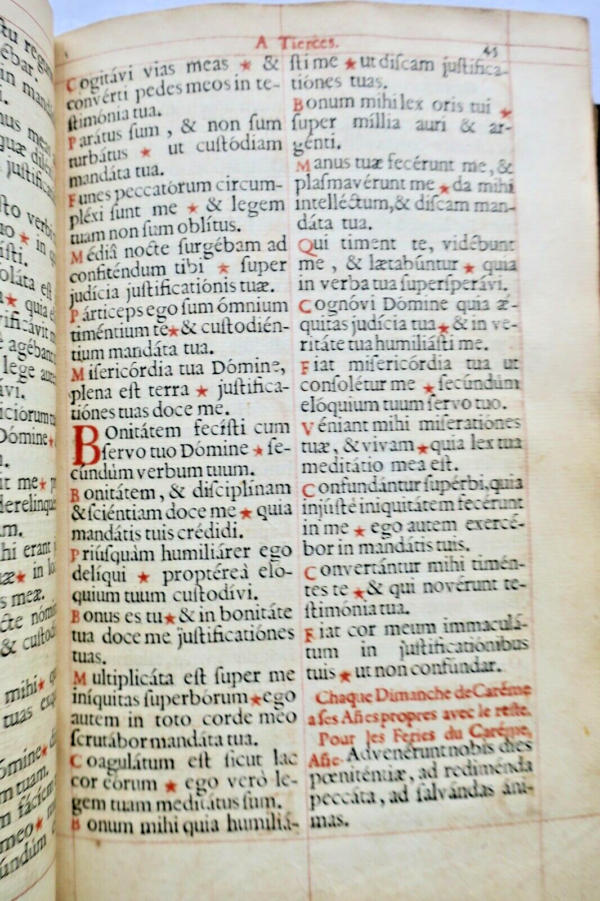 A Tierces.
45
Cogitávi vias meas ★ &
convérti pedes meos in te-
ſtimónia tua.
Parátus ſum, & non ſum
turbátus ★ ut cuſtódiam
mandáta tua.
Funes peccatórum circum-
pléxi ſunt me ★ & legem
tuam non ſum oblítus.
Médiâ nocte ſurgébam ad
confiténdum tibi ★ ſuper
judícia juſtificatiónis tuæ.
Párticeps ego ſum ómnium
timéntium te★& cuſtodién-
tium mandáta tua.
Miſericórdia tua Dómine,
plena eſt terra ★ juſtifica-
tiónes tuas doce me.
Bonitátem feciſti cum
ſervo tuo Dómine ★ ſe-
cúndùm verbum tuum.
Bonitátem, & diſciplínam
&ſciéntiam doce me ★ quia
mandátis tuis crédidi.
Priúſquàm humiliárer ego
delíqui ★ proptéreà elo-
quium tuum cuſtodívi.
Bonus es tu★& in bonitáte
tua doce me juſtificatiónes
tuas.
Multiplicáta eſt ſuper me
iníquitas ſuperbórum★ego
autem in toto corde meo
ſcrutábor mandáta tua.
Coagulátum eſt ſicut lac
cor eórum ★ ego verò le-
gem tuam meditátus ſum.
Bonum mihi quia humiliá-
ſti me ★ ut diſcam juſtifica-
tiónes tuas.
Bonum mihi lex oris tui ★
ſuper míllia auri & ar-
génti.
Manus tuæ fecérunt me, &
plaſmavérunt me ★ da mihi
intelléctum,& diſcam man-
dáta tua.
Qui timent te, vidébunt
me, & lætabúntur ★ quia
in verba tua ſuperſperávi.
Cognóvi Dómine quia æ-
quitas judícia tua★& in ve-
ritáte tua humiliáſti me.
Fiat miſericórdia tua ut
conſolétur me ★ ſecúndùm
elóquium tuum ſervo tuo.
Véniant mihi miſeratiónes
tuæ, & vivam★quia lex tua
meditátio mea eſt.
Confundántur ſupérbi,quia
injúſtè iniquitátem fecérunt
in me ★ ego autem exercé-
bor in mandátis tuis.
Convertántur mihi timén-
tes te ★ & qui novérunt te-
ſtimónia tua.
Fiat cor meum immaculá-
tum in juſtificatiónibus
tuis ★ ut non confúndar.
Chaque Dimanche de Caréme
a ses Añes propres avec le reste.
Pour les Feries du Caréme,
Añe. Advenérunt nobis dies
pœniténtiæ, ad rediménda
peccáta, ad ſalvándas áni-
mas.